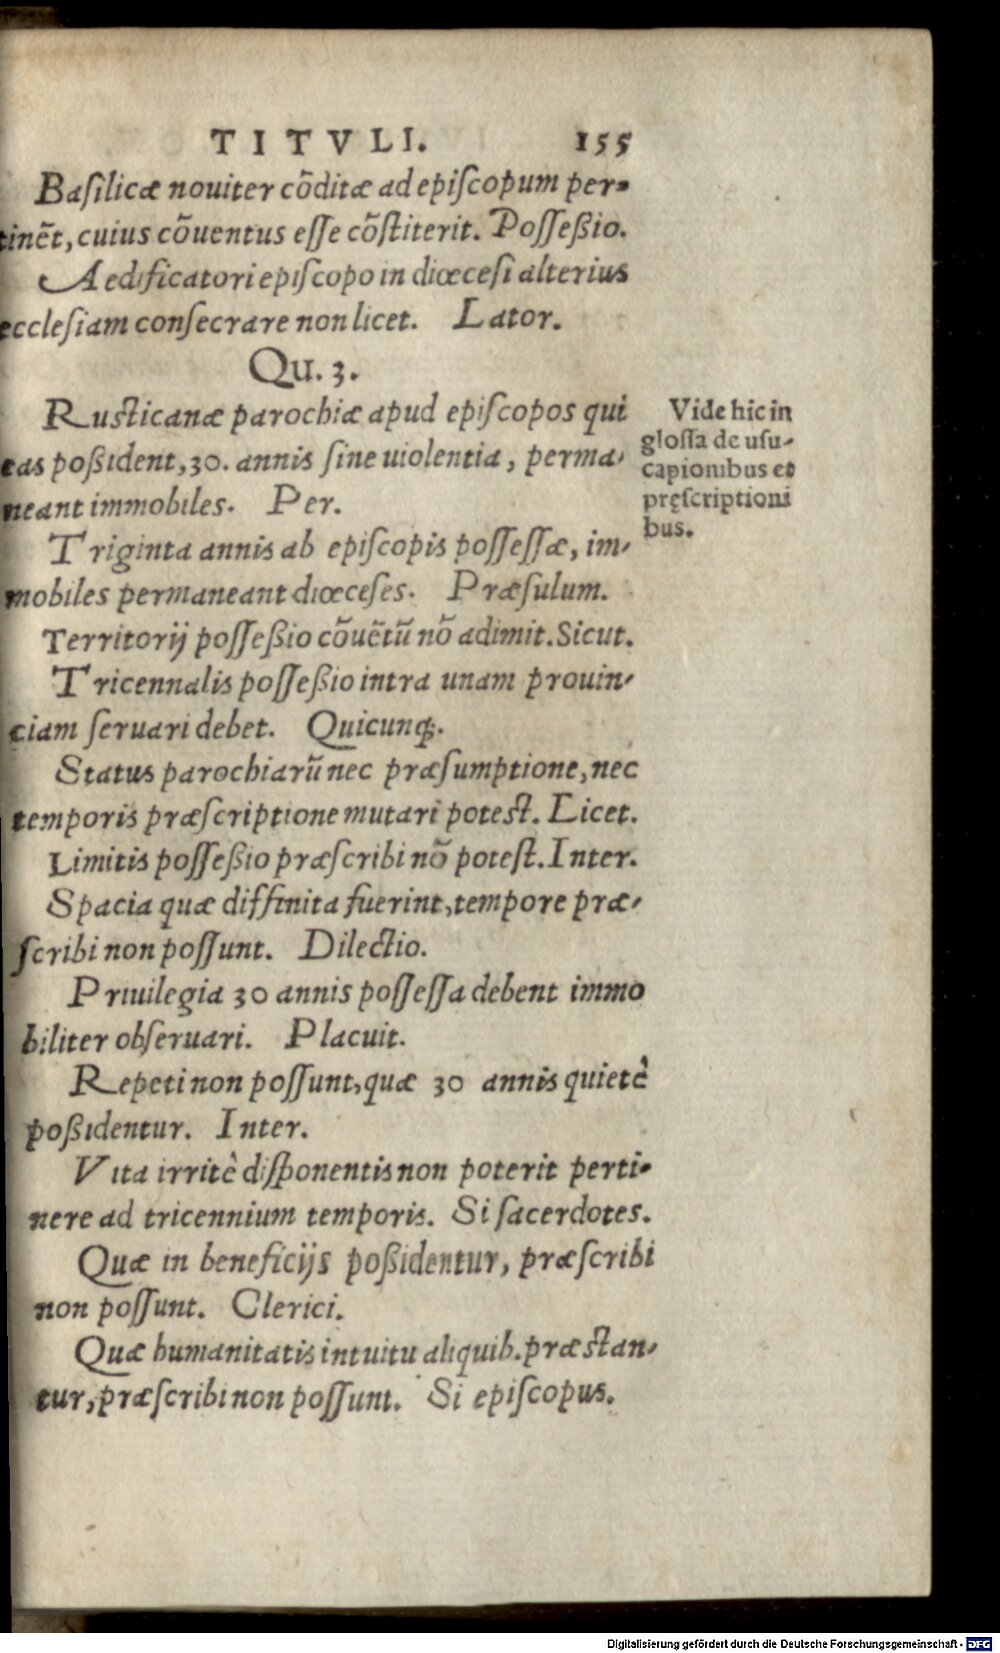 TITVLI. 155
Basilicæ nouiter cõditæ ad episcopum per-
tinẽt, cuius cõuentus esse cõstiterit. Posseßio.
Aedificatori episcopo in diœcesi alterius
ecclesiam consecrare non licet. Lator.
Qu. 3.
Rusticanæ parochiæ apud episcopos qui
eas poßident, 30. annis sine uiolentia, perma-
neant immobiles. Per.
Vide hic in
glossa de usu-
capionibus et
pręscriptioni
bus.
Triginta annis ab episcopis possessæ, im-
mobiles permaneant diœceses. Præsulum.
Territorij posseßio cõuẽtũ nõ adimit. Sicut.
Tricennalis posseßio intra unam prouin-
ciam seruari debet. Quicunq;.
Status parochiarũ nec præsumptione, nec
temporis præscriptione mutari potest. Licet.
Limitis posseßio præscribi nõ potest. Inter.
Spacia quæ diffinita fuerint, tempore præ-
scribi non possunt. Dilectio.
Priuilegia 30 annis possessa debent immo
biliter obseruari. Placuit.
Repeti non possunt, quæ 30 annis quietè
poßidentur. Inter.
Vita irritè disponentis non poterit perti-
nere ad tricennium temporis. Si sacerdotes.
Quæ in beneficijs poßidentur, præscribi
non possunt. Clerici.
Quæ humanitatis intuitu aliquib. præstan-
tur, præscribi non possunt. Si episcopus.
Digitalisierung gefördert durch die Deutsche Forschungsgemeinschaft - DFG